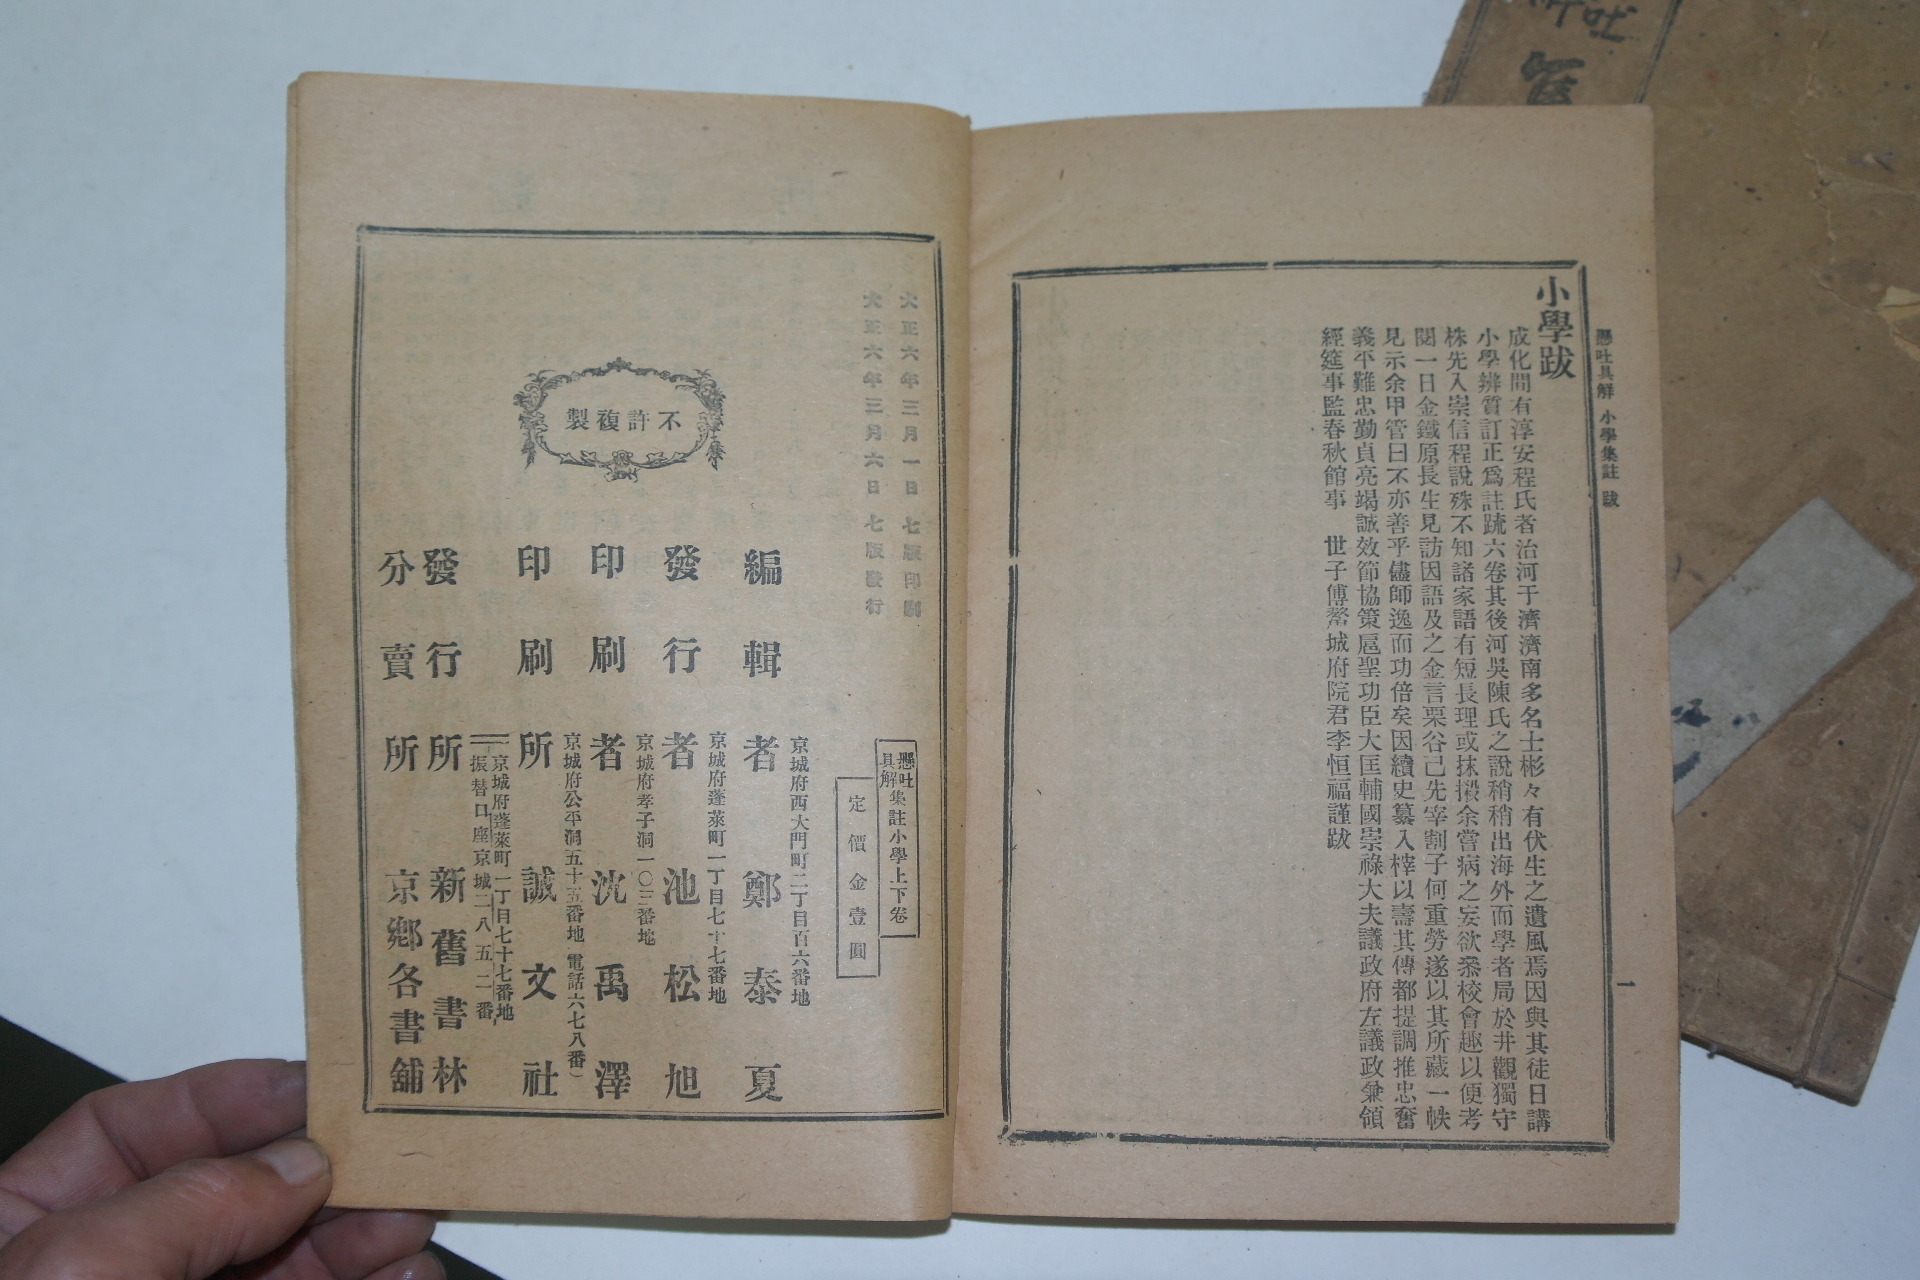 懸吐具解 小學集註 跋
一
小學跋
成化間有淳安程氏者治河于濟濟南多名士彬々有伏生之遺風焉因與其徒日講
小學辨質訂正爲註疏六卷其後河吳陳氏之說稍稍出海外而學者局於井觀獨守
株先入崇信程說殊不知諸家語有短長理或抹摋余嘗病之妄欲叅校會趣以便考
閱一日金鐵原長生見訪因語及之金言栗谷己先宰割子何重勞遂以其所藏一帙
見示余甲管曰不亦善乎儘師逸而功倍矣因續史纂入榟以壽其傳都提調推忠奮
義平難忠勤貞亮竭誠效節協策扈聖功臣大匡輔國崇祿大夫議政府左議政兼領
經筵事監春秋館事 世子傅鰲城府院君李恒福謹跋
大正六年三月一日 七版印刷
大正六年三月六日 七版發行
不許複製
懸吐具解集註小學上下卷
定價金壹圓
京城府西大門町二丁目百六番地
編輯者 鄭泰夏
京城府蓬萊町一丁目七十七番地
發行者 池松旭
京城府孝子洞一〇三番地
印刷者 沈禹澤
京城府公平洞五十五番地 電話六七八番)
印刷所 誠文社
京城府蓬萊町一丁目七十七番地
振替口座京城二八五二番
發行所 新舊書林
分賣所 京鄉各書舖
吐
舊